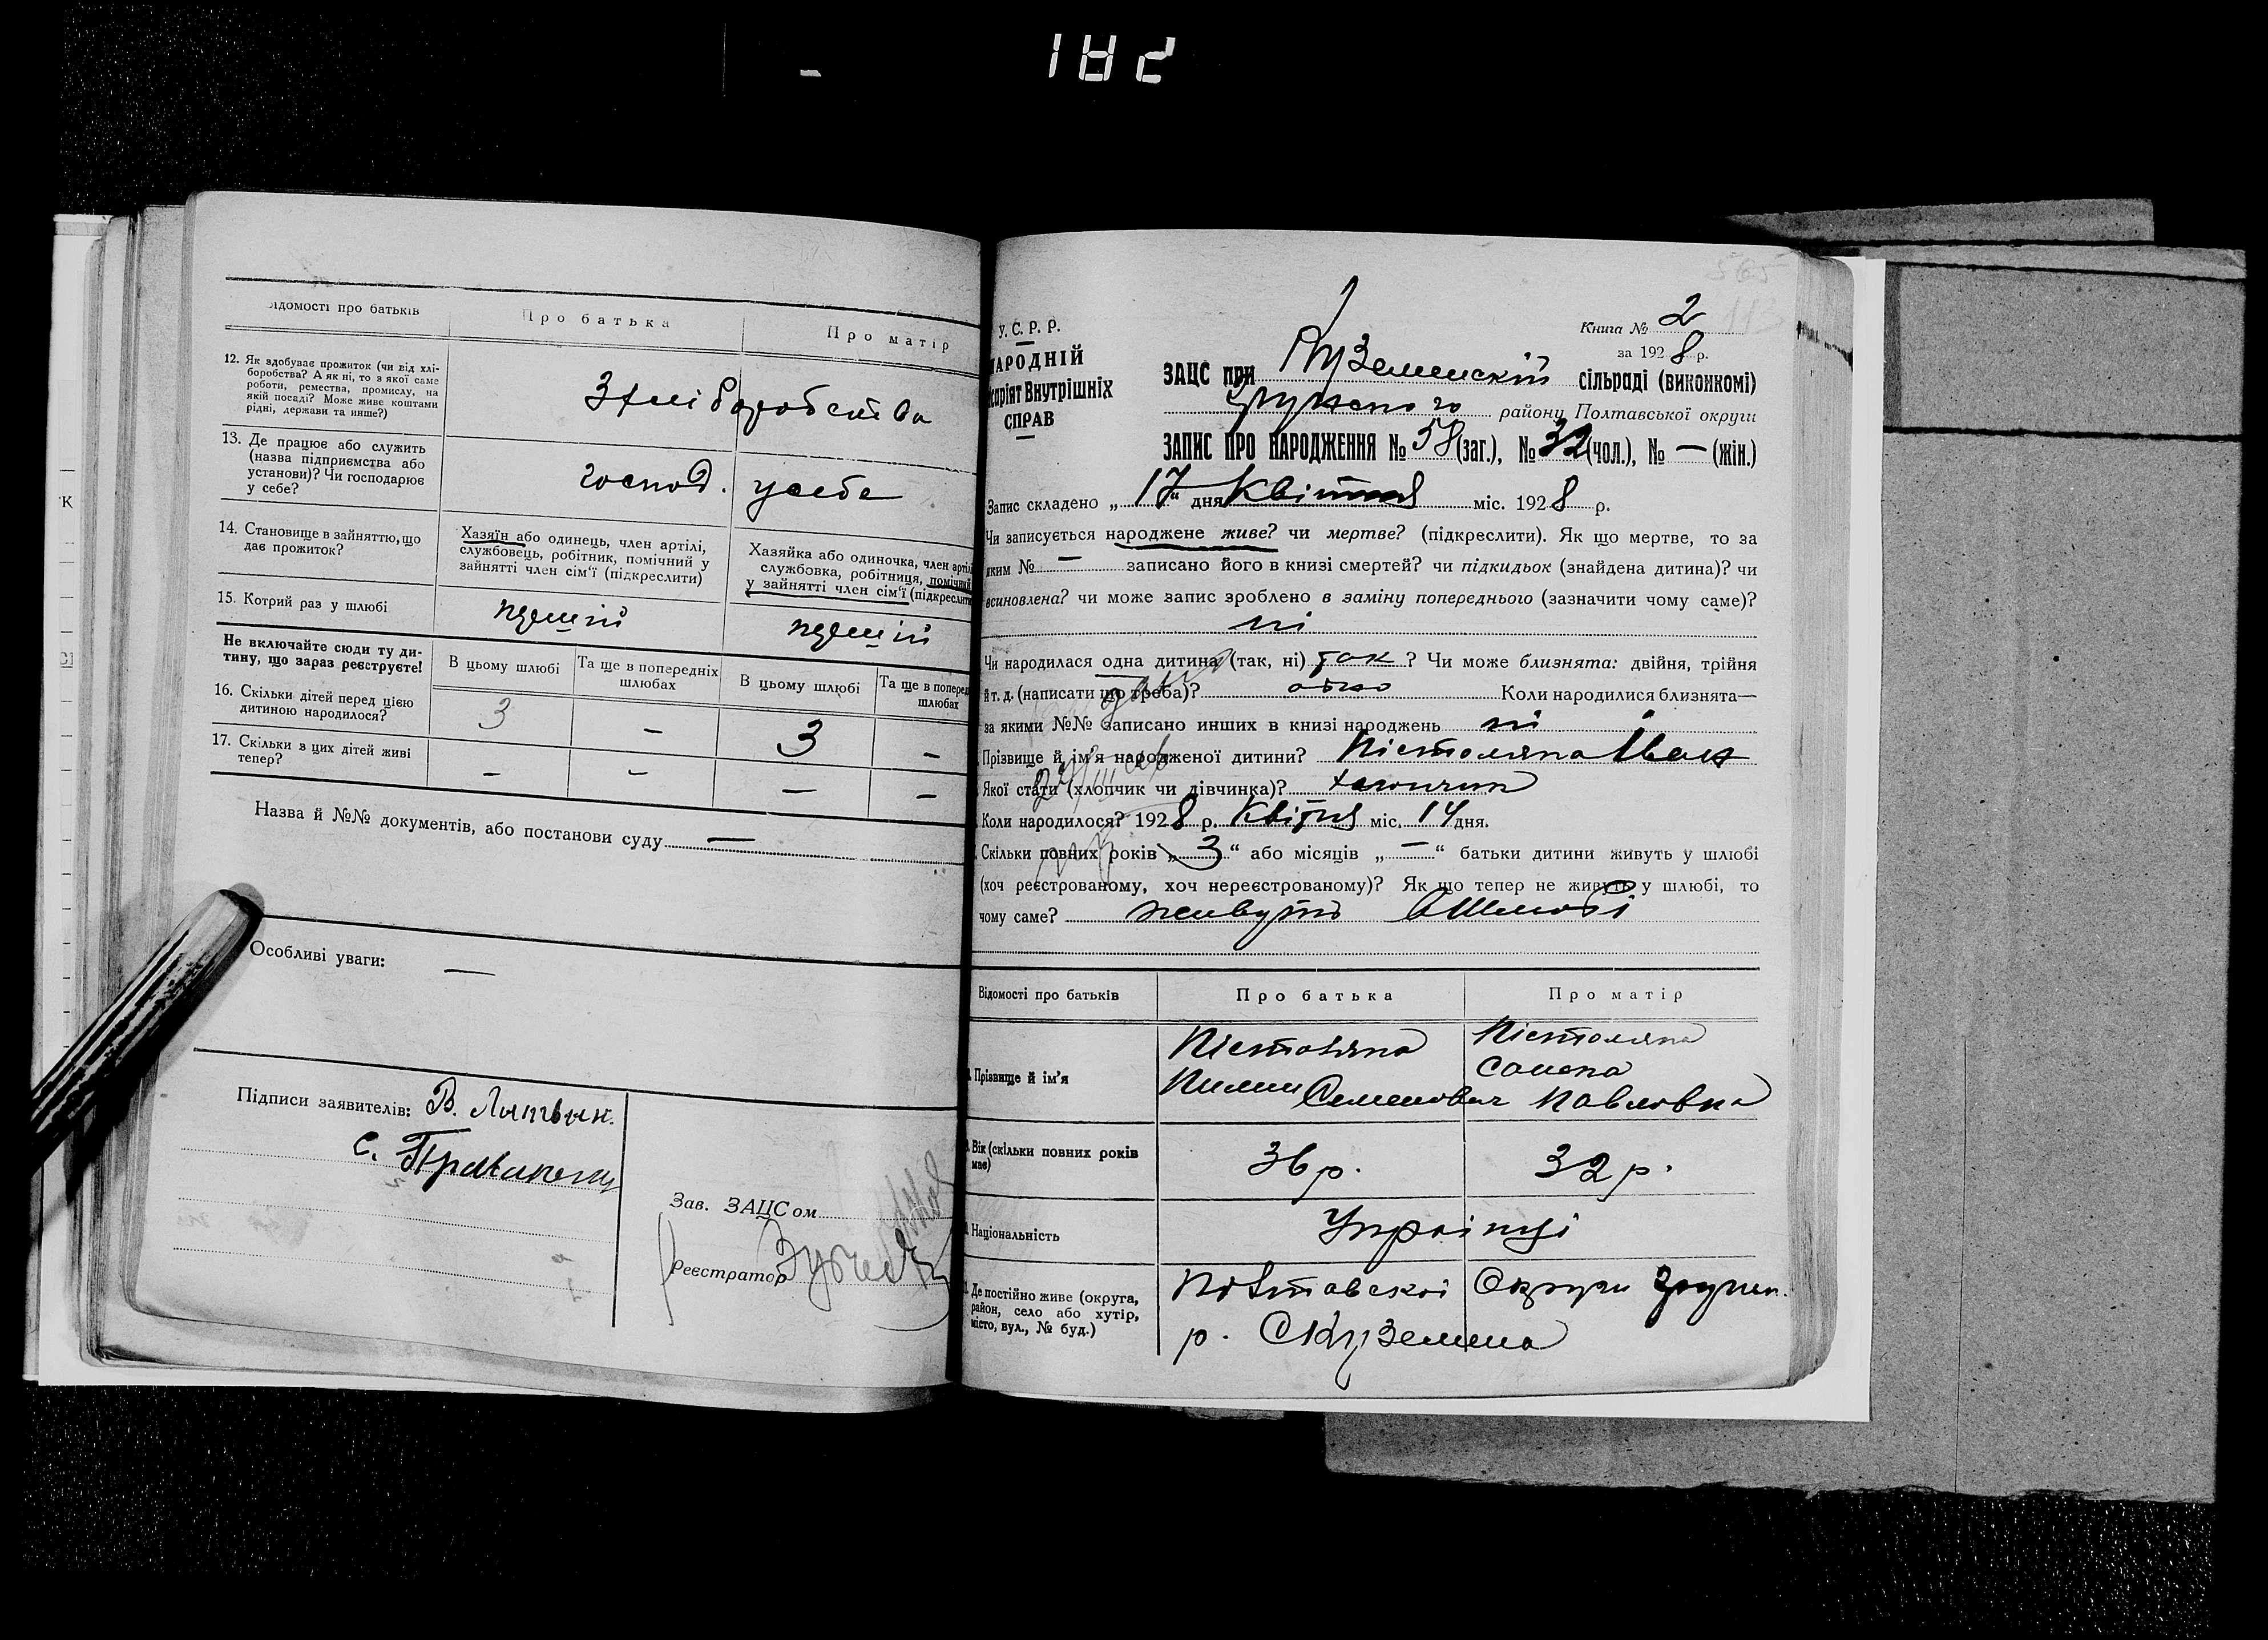 182
ідомості про батьків
Про батька
Про матір
12. Як здобуває прожиток (чи від хлі-
боробства? А як ні, то з якої саме
роботи, ремества, промислу, на
якій посаді? Може живе коштами
рідні, держави та инше?)
З хліборобства
13. Де працює або служить
(назва підприємства або
установи)? Чи господарює
у себе?
господ. у себе
14. Становище в зайняттю, що
дає прожиток?
Хазяїн або одинець, член артілі,
службовець, робітник, помічний у
зайнятті член сім'ї (підкреслити)
Хазяйка або одиночка, член артілі
службовка, робітниця, помічний
у зайнятті член сім'ї (підкреслити
15. Котрий раз у шлюбі
перший
перший
Не включайте сюди ту ди-
тину, що зараз реєструєте!
В цьому шлюбі
Та ще в попередніх
шлюбах
В цьому шлюбі
Та ще в поперед
шлюбах
16. Скільки дітей перед цією
дитиною народилося?
3 — 3 —
17. Скільки з цих дітей живі
тепер?
— — — —
Назва й №№ документів, або постанови суду —
Особливі уваги: —
Підписи заявителів: В. Литвин.
С.
Зав. ЗАЦСом
Реєстратор
У. С. Р. Р.
НАРОДНІЙ
саріят Внутрішніх
СПРАВ
Книга № 2
за 1928 р.
ЗАЦС при Куземенській сільраді (виконкомі)
Грунського району Полтавської округи
ЗАПИС ПРО НАРОДЖЕННЯ № 58 (заг.), № 32 (чол.), № — (жін.)
Запис складено „17" дня Квітня міс. 1928 р.
Чи записується народжене живе? чи мертве? (підкреслити). Як що мертве, то за
яким № — записано його в книзі смертей? чи підкидьок (знайдена дитина)? чи
всиновлена? чи може запис зроблено в заміну попереднього (зазначити чому саме)?
ні
Чи народилася одна дитина (так, ні) так? Чи може близнята: двійня, трійня
й т. д. (написати що треба)? одно Коли народилися близнята—
за якими №№ записано инших в книзі народжень ні
Прізвище й ім'я народженої дитини? Пістоляка Іван
Якої стати (хлопчик чи дівчинка)? хлопчик
Коли народилося? 1928 р. Квітня міс. 14 дня.
Скільки повних років „3" або місяців „—" батьки дитини живуть у шлюбі
(хоч реєстрованому, хоч нереєстрованому)? Як що тепер не живуть у шлюбі, то
чому саме? живуть в шлюбі
Відомості про батьків
Про батька
Про матір
Прізвище й ім'я
Пістоляка
Пилип Семенович
Пістоляка
Павловна
Вік (скільки повних років
має)
36 р.
32 р.
Національність
Українці
Де постійно живе (округа,
район, село або хутір,
місто, вул., № буд.)
Полтавської Округи Грунсь.
р. С Куземена